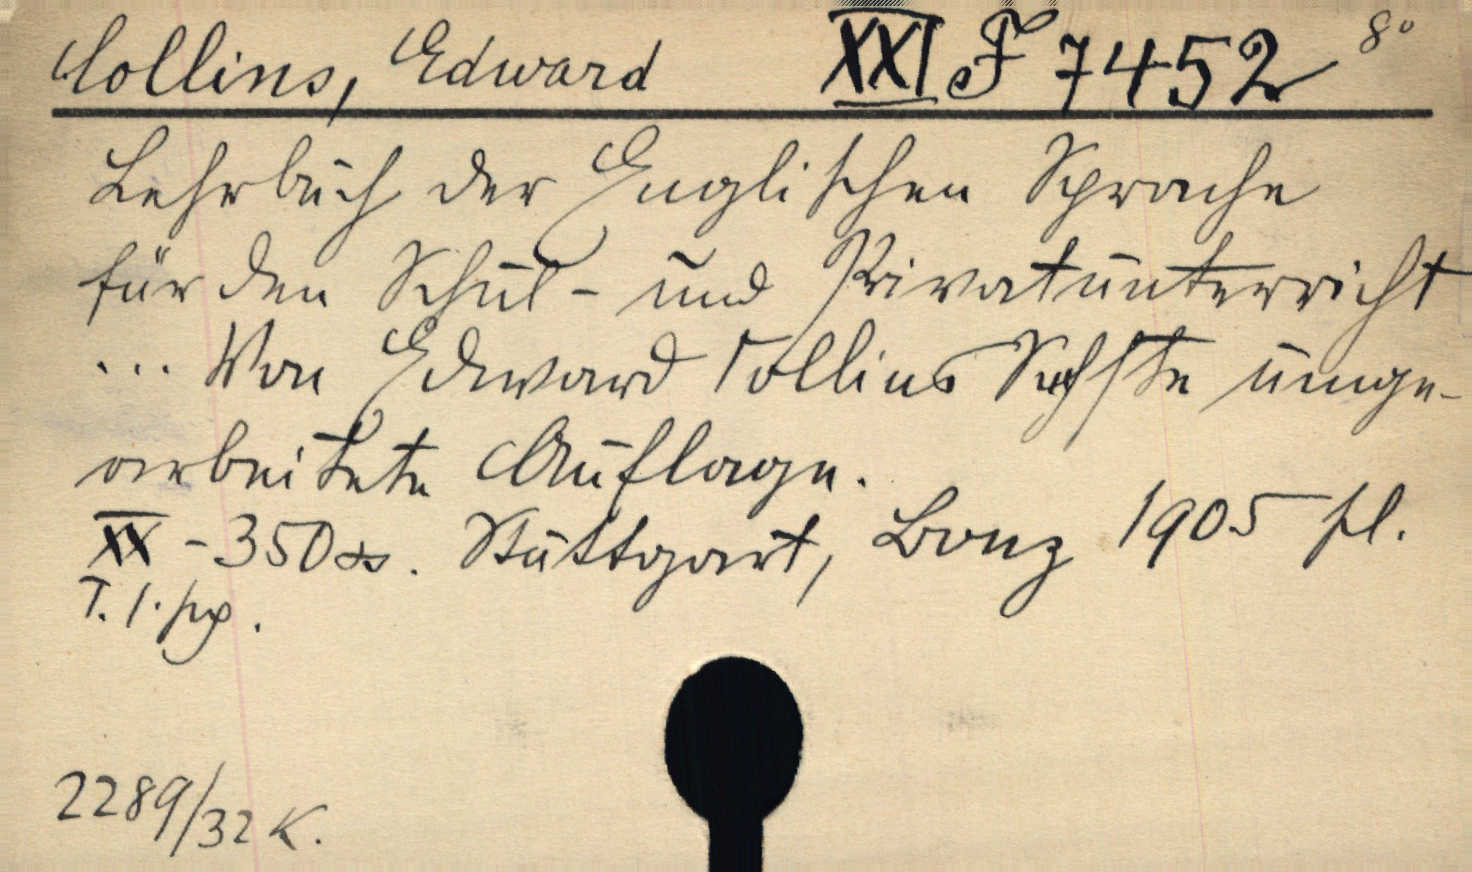 Collins, Edward XXI F 7452 8°
Lehrbuch der Englischen Sprache
für den Schul- und Privatunterricht
... Von Edward Collins Sechste umge-
arbeitete Auflage.
XX - 350 S. Stuttgart, Bonz 1905
T. 1.
2289/32 K.